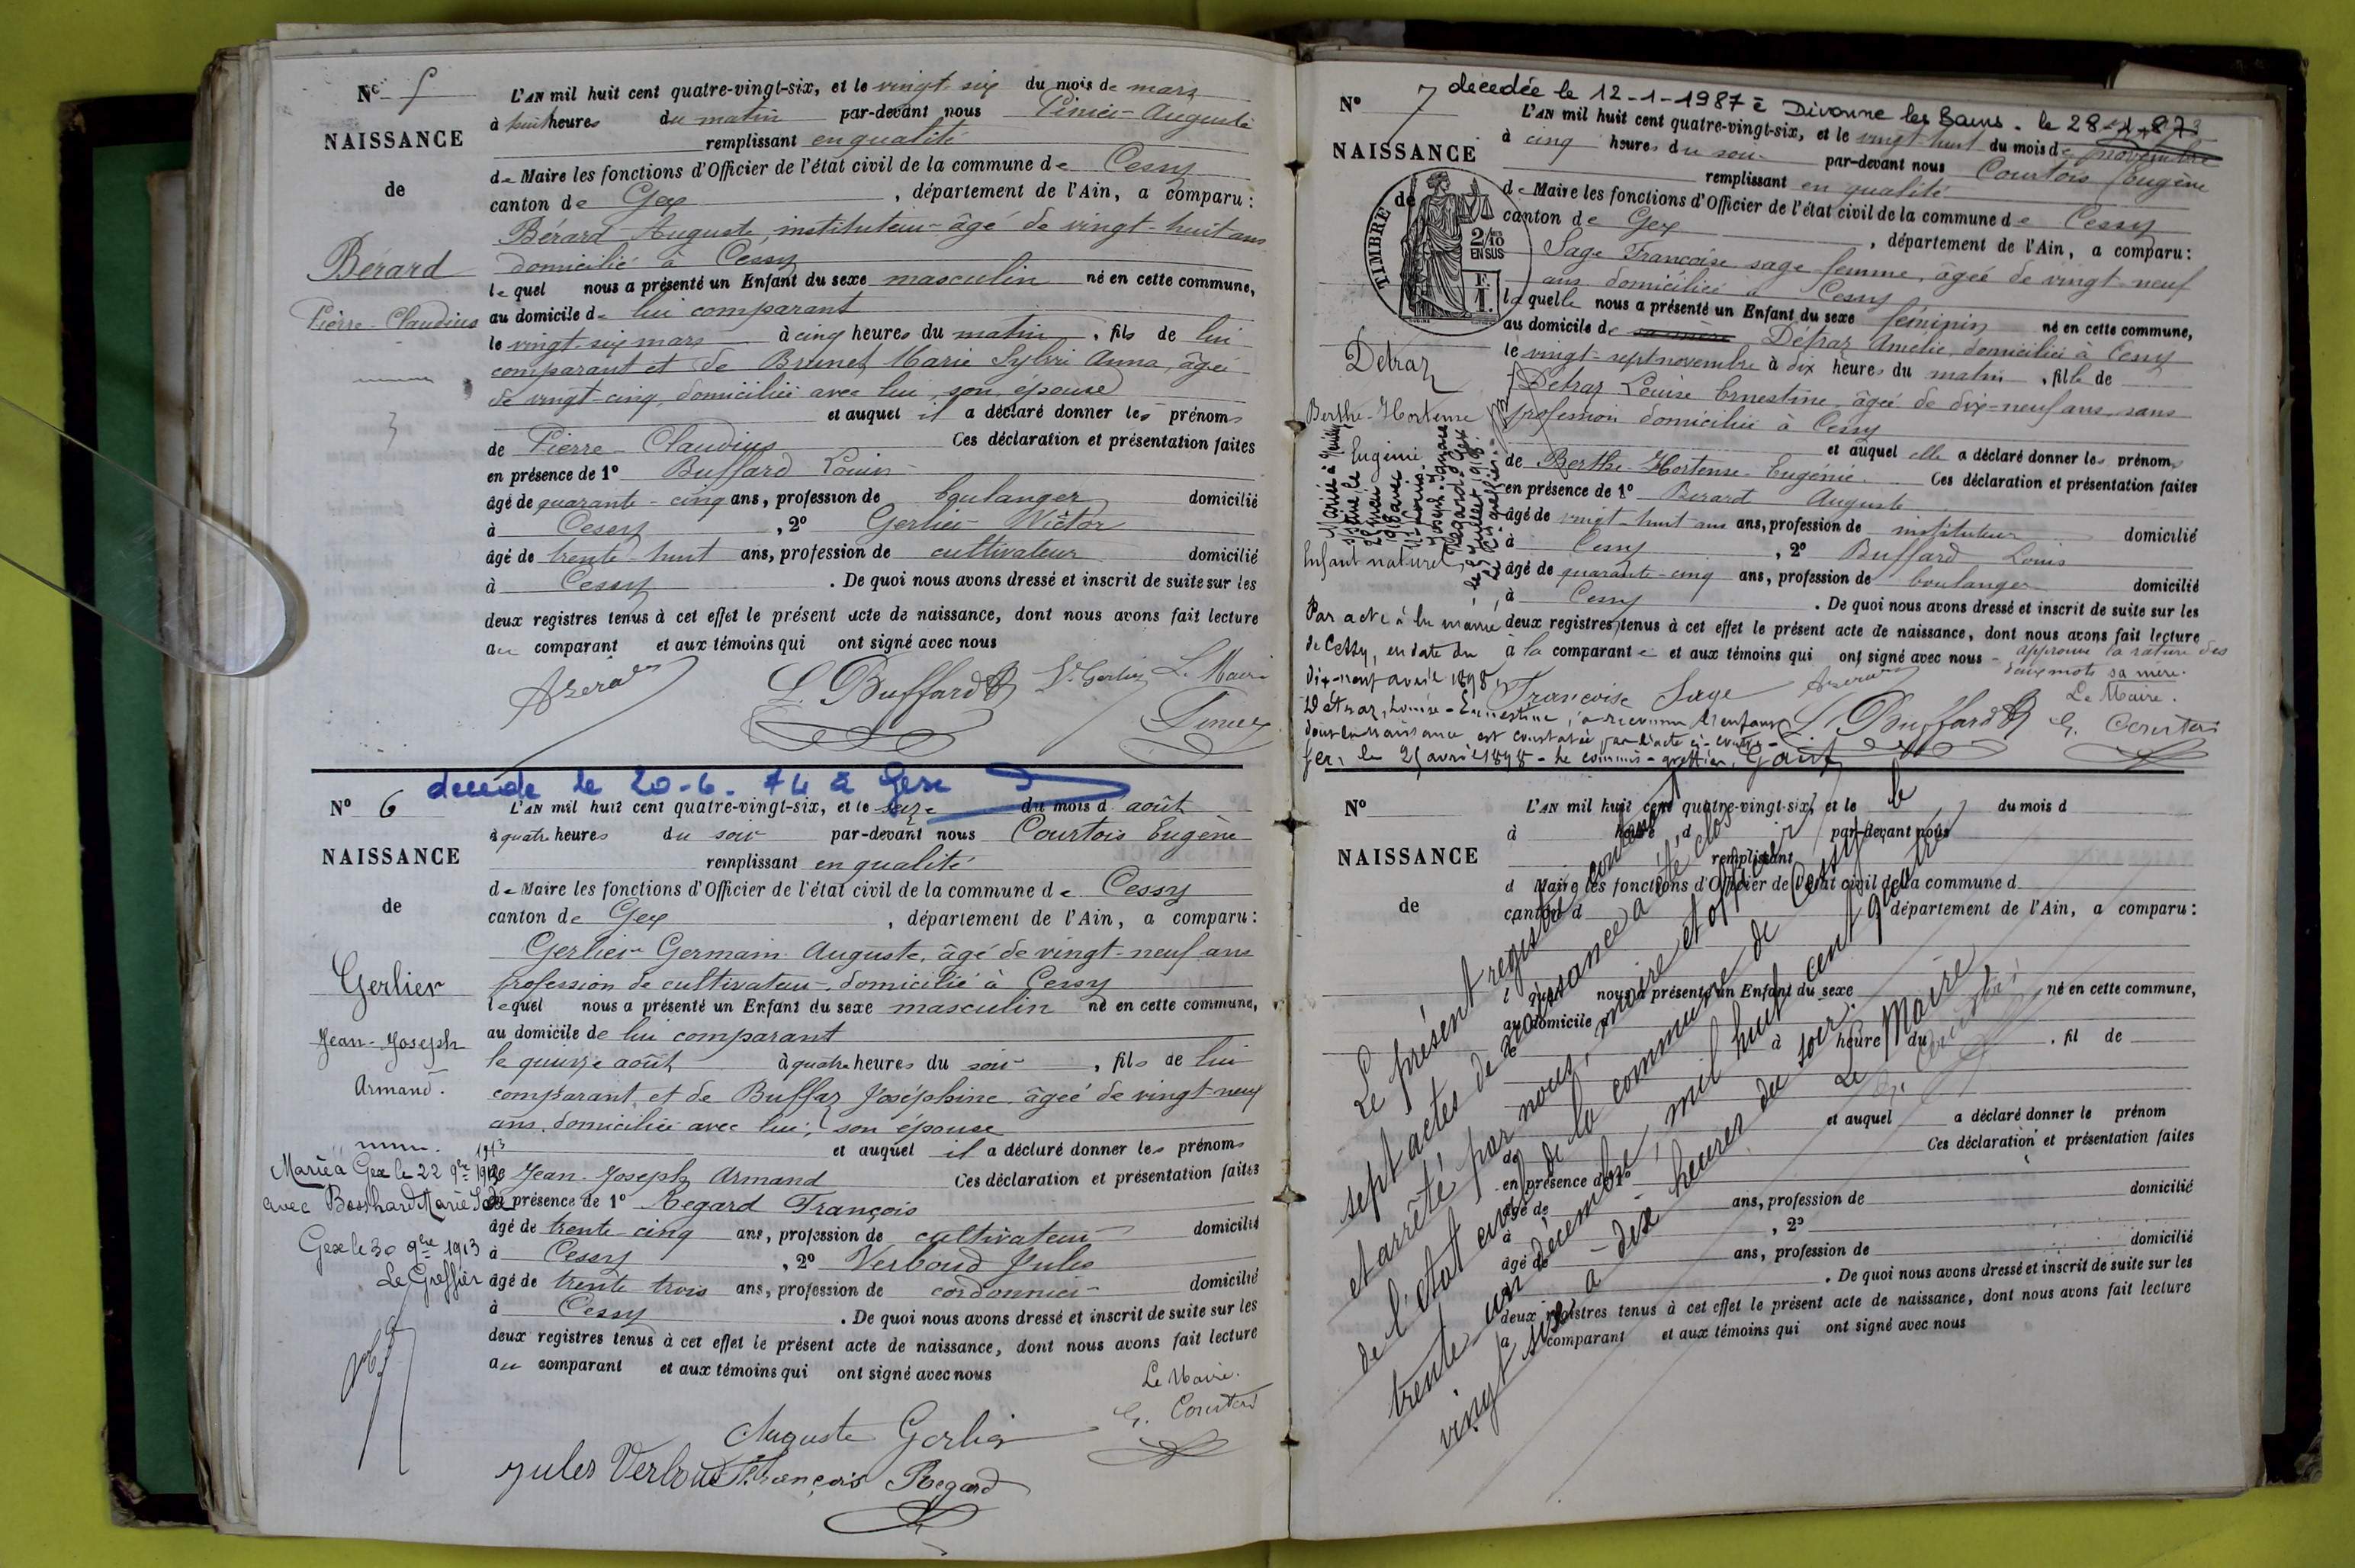 N° 5
NAISSANCE
de
Bérard
Pierre-Claudius
L'AN mil huit cent quatre-vingt-six, et le vingt-six du mois de mars
à huit heures du matin par-devant nous Pinier Auguste
remplissant en qualité
de Maire les fonctions d'Officier de l'état civil de la commune de Cessy
canton de Gex, département de l'Ain, a comparu:
Bérard Auguste, instituteur âgé de vingt-huit ans
domicilié à Cessy
lequel nous a présenté un Enfant du sexe masculin né en cette commune,
au domicile de lui comparant
le vingt-six mars à cinq heures du matin, fils de lui
comparant et de Brunet Marie Sylvie Anna, âgée
de vingt-cinq, domiciliée avec lui, son épouse
et auquel il a déclaré donner les prénoms
de Pierre-Claudius Ces déclaration et présentation faites
en présence de 1° Buffard Louis
âgé de quarante-cinq ans, profession de boulanger domicilié
à Cessy, 2° Gerlier Victor
âgé de trente-huit ans, profession de cultivateur domicilié
à Cessy. De quoi nous avons dressé et inscrit de suite sur les
deux registres tenus à cet effet le présent acte de naissance, dont nous avons fait lecture
au comparant et aux témoins qui ont signé avec nous
L. Buffard V. Gerlier Le Maire
décédé le 20-6-74 à Gex
N° 6
NAISSANCE
de
Gerlier
Jean-Joseph
Armand.
L'AN mil huit cent quatre-vingt-six, et le seize du mois d août
à quatre heures du soir par-devant nous Courtois Eugène
remplissant en qualité
de Maire les fonctions d'Officier de l'état civil de la commune de Cessy
canton de Gex, département de l'Ain, a comparu:
Gerlier Germain Auguste, âgé de vingt-neuf ans
profession de cultivateur, domicilié à Cessy
lequel nous a présenté un Enfant du sexe masculin né en cette commune,
au domicile de lui comparant
le quinze août à quatre heures du soir, fils de lui
comparant et de Buffaz Joséphine âgée de vingt-neuf
ans, domiciliée avec lui, son épouse
et auquel il a déclaré donner les prénoms
de Jean-Joseph Armand Ces déclaration et présentation faites
en présence de 1° Regard François
âgé de trente cinq ans, profession de cultivateur domicilié
à Cessy, 2° Verboud Jules
âgé de trente trois ans, profession de cordonnier domicilié
à Cessy. De quoi nous avons dressé et inscrit de suite sur les
deux registres tenus à cet effet le présent acte de naissance, dont nous avons fait lecture
au comparant et aux témoins qui ont signé avec nous
Marié à Gex le 22 9bre 1913
avec Bosshard Marie
Gex le 30 9bre 1913
Le Greffier
Le Maire.
E. Courtois
Auguste Gerlier
Jules Verboud François Regard
décédée le 12-1-1987 à Divonne les Bains. le 28-1-87
N° 7
NAISSANCE
de
TIMBRE
2/10
EN SUS
Detraz
Berthe-Hortense
Eugénie
Enfant naturel
L'AN mil huit cent quatre-vingt-six, et le vingt-huit du mois de novembre
à cinq heures du soir par-devant nous Courtois Eugène
remplissant en qualité
de Maire les fonctions d'Officier de l'état civil de la commune de Cessy
canton de Gex, département de l'Ain, a comparu:
Sage Françoise sage femme, âgée de vingt-neuf
ans domiciliée à Cessy
laquelle nous a présenté un Enfant du sexe féminin né en cette commune,
au domicile de sa mère Détraz Amélie, domiciliée à Cessy
le vingt-sept novembre à dix heures du matin, fille de
Détraz Louise Ernestine, âgée de dix-neuf ans sans
profession domiciliée à Cessy
et auquel elle a déclaré donner les prénoms
de Berthe-Hortense-Eugénie. Ces déclaration et présentation faites
en présence de 1° Berard Auguste
âgé de vingt-huit ans ans, profession de instituteur domicilié
à Cessy, 2° Buffard Louis
âgé de quarante-cinq ans, profession de boulanger domicilié
à Cessy. De quoi nous avons dressé et inscrit de suite sur les
deux registres tenus à cet effet le présent acte de naissance, dont nous avons fait lecture
à la comparante et aux témoins qui ont signé avec nous - approuvé la rature des
deux mots sa mère.
Françoise Sage
L. Buffard
Le Maire.
E. Courtois
Par acte à la mairie
de Cessy, en date du
dix-neuf avril 1898,
Détraz, Louise-Ernestine, a reconnu l'enfant
dont la naissance est constatée par l'acte ci-contre.
Gex, le 25 avril 1898 - Le commis-greffier,
N°
NAISSANCE
de
L'AN mil huit cent quatre-vingt-six, et le du mois d
à heure d par-devant nous
remplissant
d Maire les fonctions d'Officier de l'état civil de la commune d
canton d, département de l'Ain, a comparu:
l quel nous a présenté un Enfant du sexe né en cette commune,
au domicile d
le à heure du, fil de
et auquel a déclaré donner le prénom
de Ces déclaration et présentation faites
en présence de 1°
âgé de ans, profession de domicilié
à, 2°
âgé de ans, profession de domicilié
à. De quoi nous avons dressé et inscrit de suite sur les
deux registres tenus à cet effet le présent acte de naissance, dont nous avons fait lecture
a comparant et aux témoins qui ont signé avec nous
Le présent registre contenant
sept actes de naissances a été clos
et arrêté par nous, maire et officier
de l'état civil de la commune de Cessy le
trente un décembre, mil huit cent quatre
vingt six à dix heures du soir.
Le Maire
E. Courtois